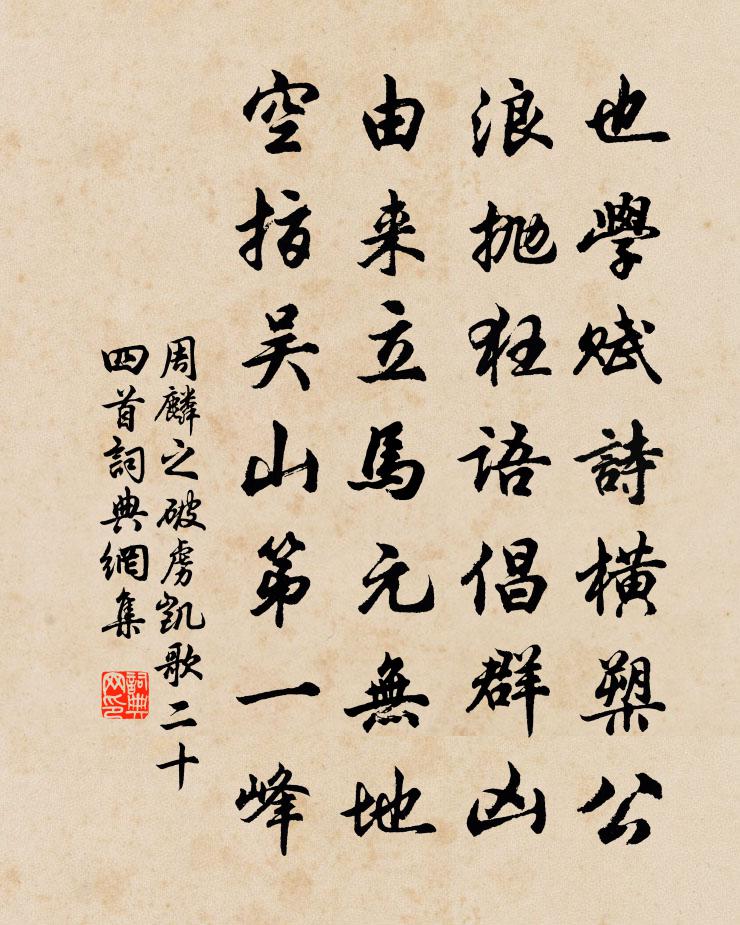 也學賦詩橫槊公
浪拋狂語倡群凶
由来立馬元無地
空指吴山第一峰
周麟之破虜凱歌二十
四首詞典網集
詞典
网印